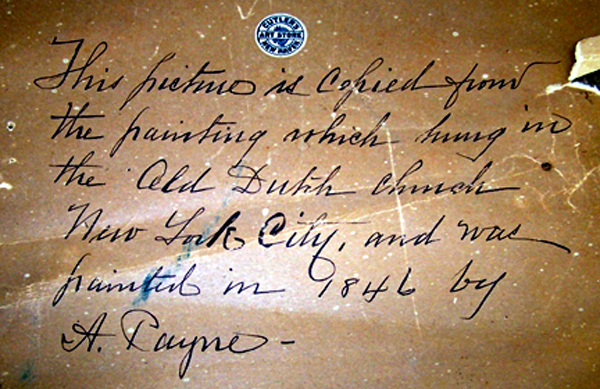 CUTLER'S
ART STORE
NEW HAVEN
This picture is copied from
the painting which hung in
the Old Dutch church
New York City, and was
painted in 1846 by
A. Payne -